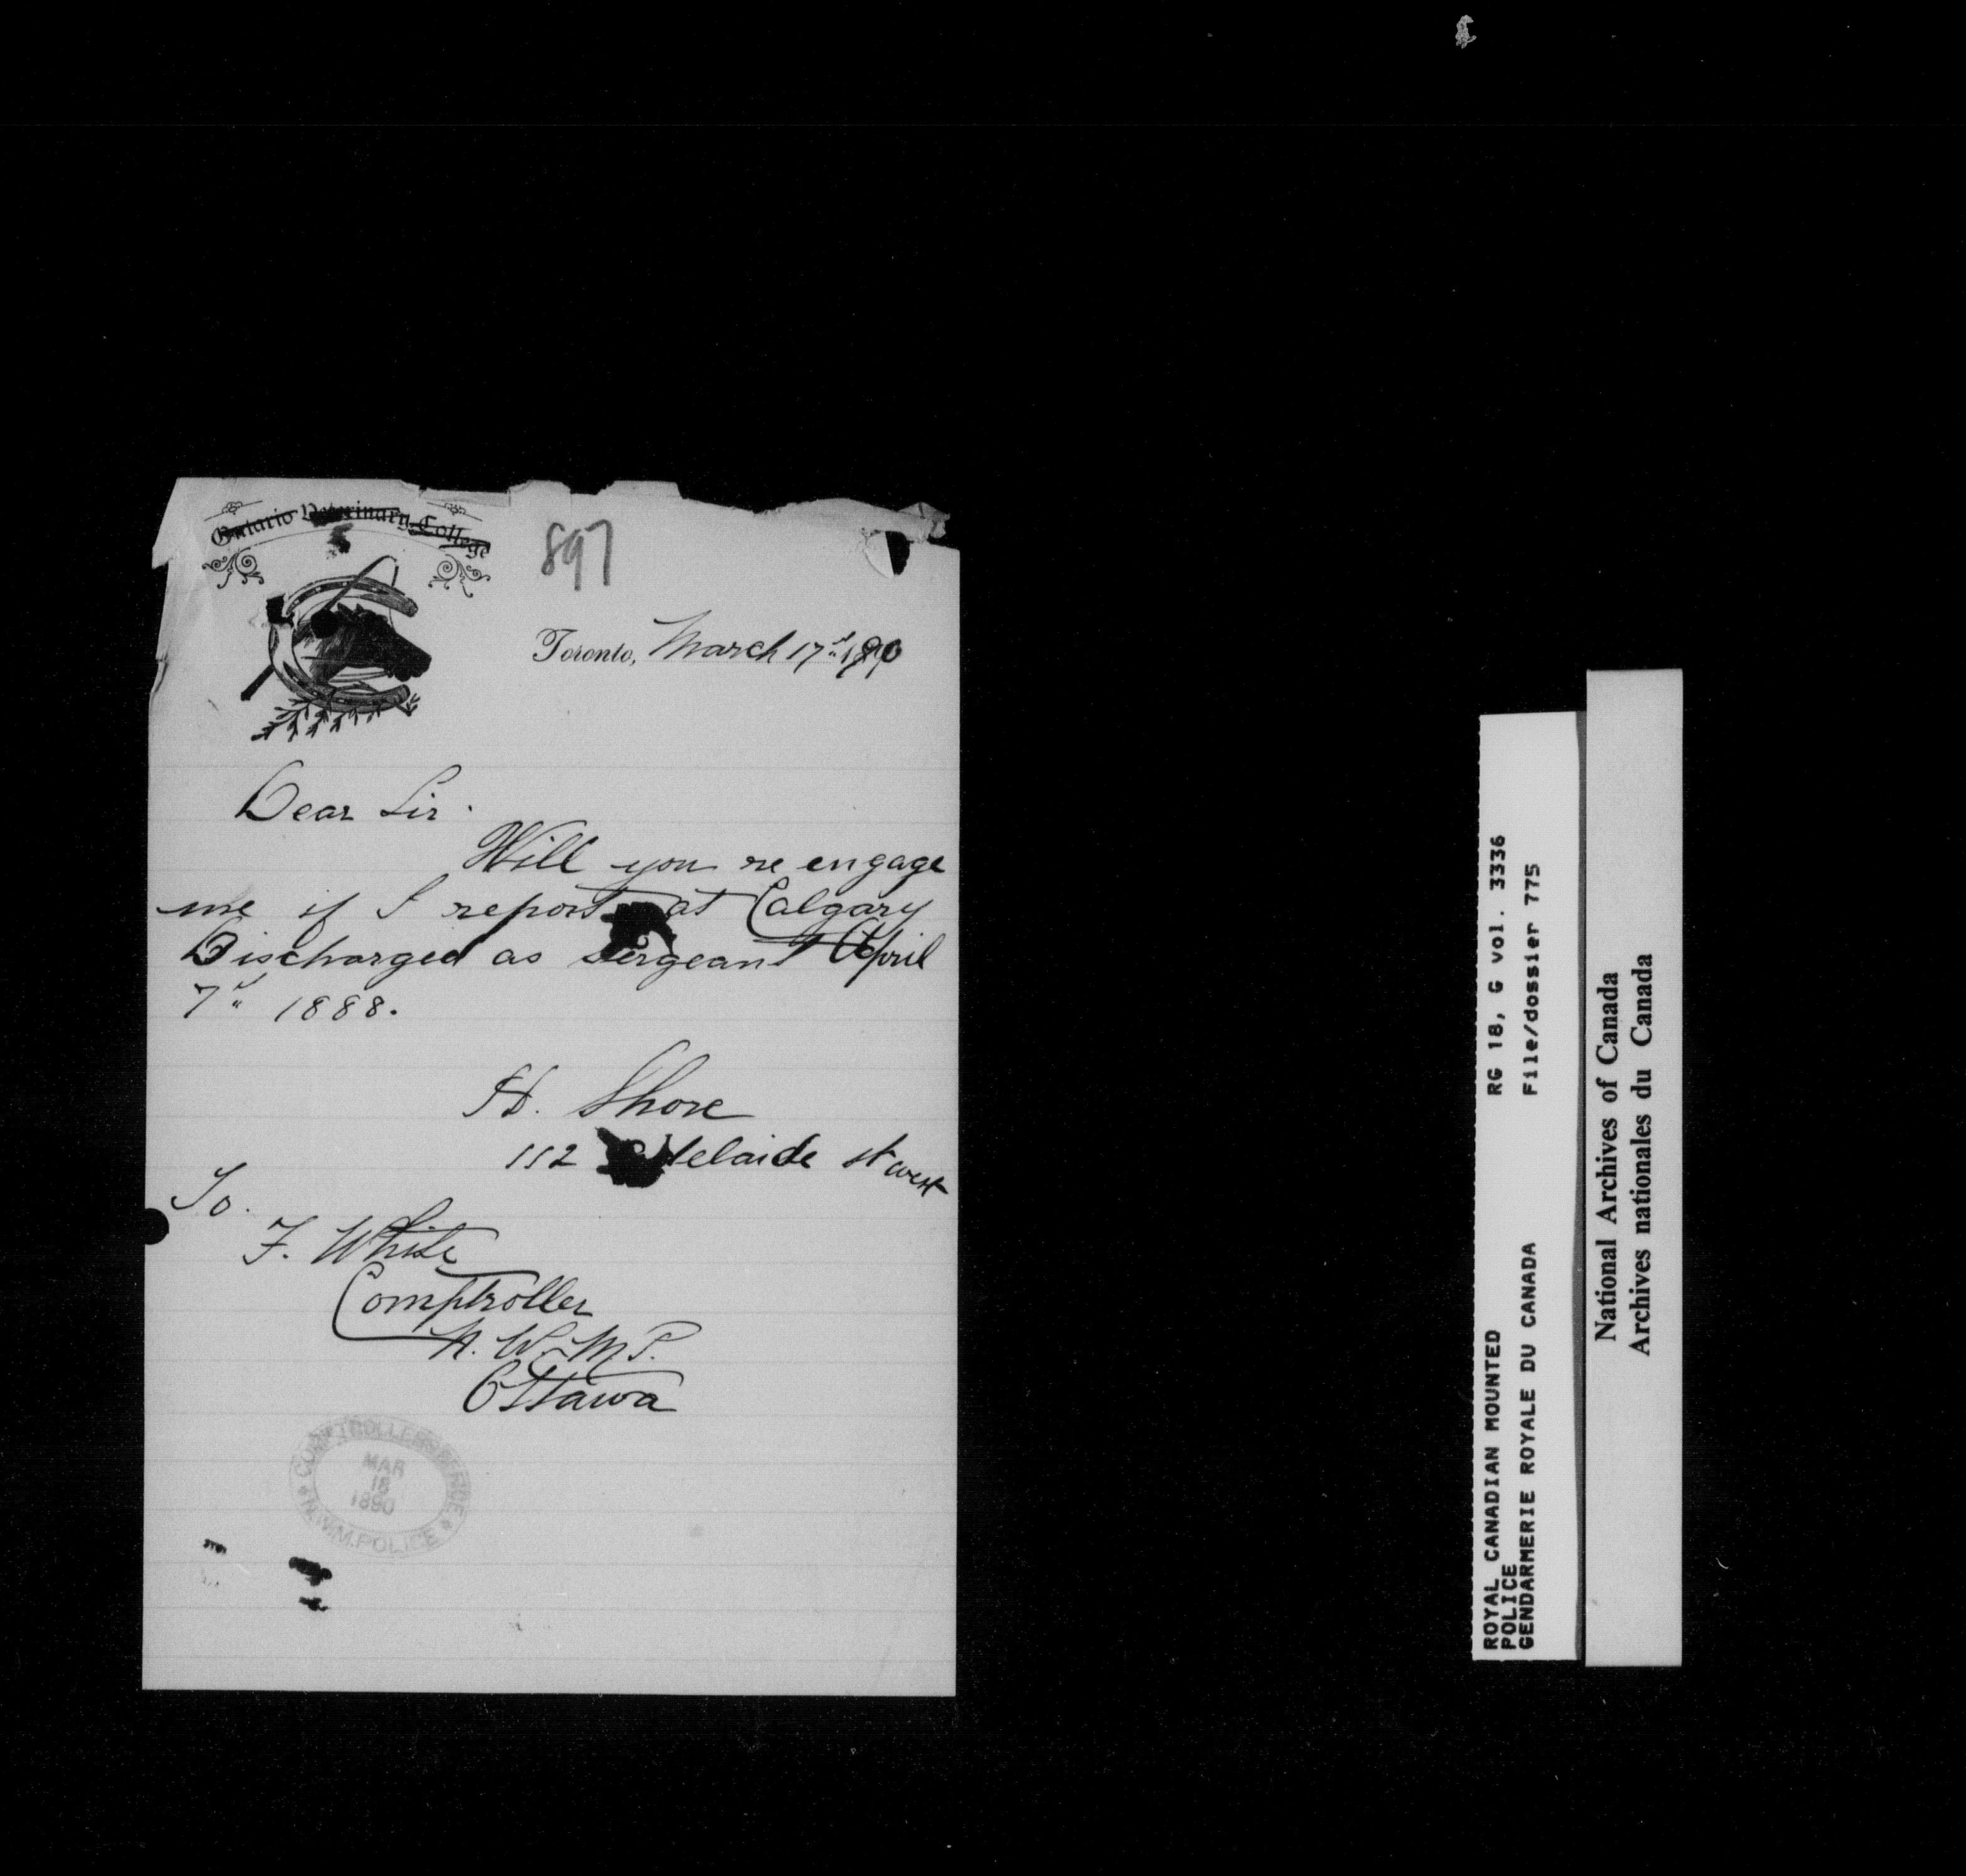 Ontario Veterinary College
897
Toronto, March 17th 1890
Dear Sir.
Will you re engage
me if I report at Calgary
Discharged as Sergeant April
7th 1888.
H. Shore
112 Adelaide st west
To.
F. White
Comptroller
N. W. M P.
Ottawa
COMPTROLLER'S OFFICE
MAR
18
1890
N.W.M.POLICE
ROYAL CANADIAN MOUNTED
POLICE
GENDARMERIE ROYALE DU CANADA
RG 18, G vol. 3336
File/dossier 775
National Archives of Canada
Archives nationales du Canada